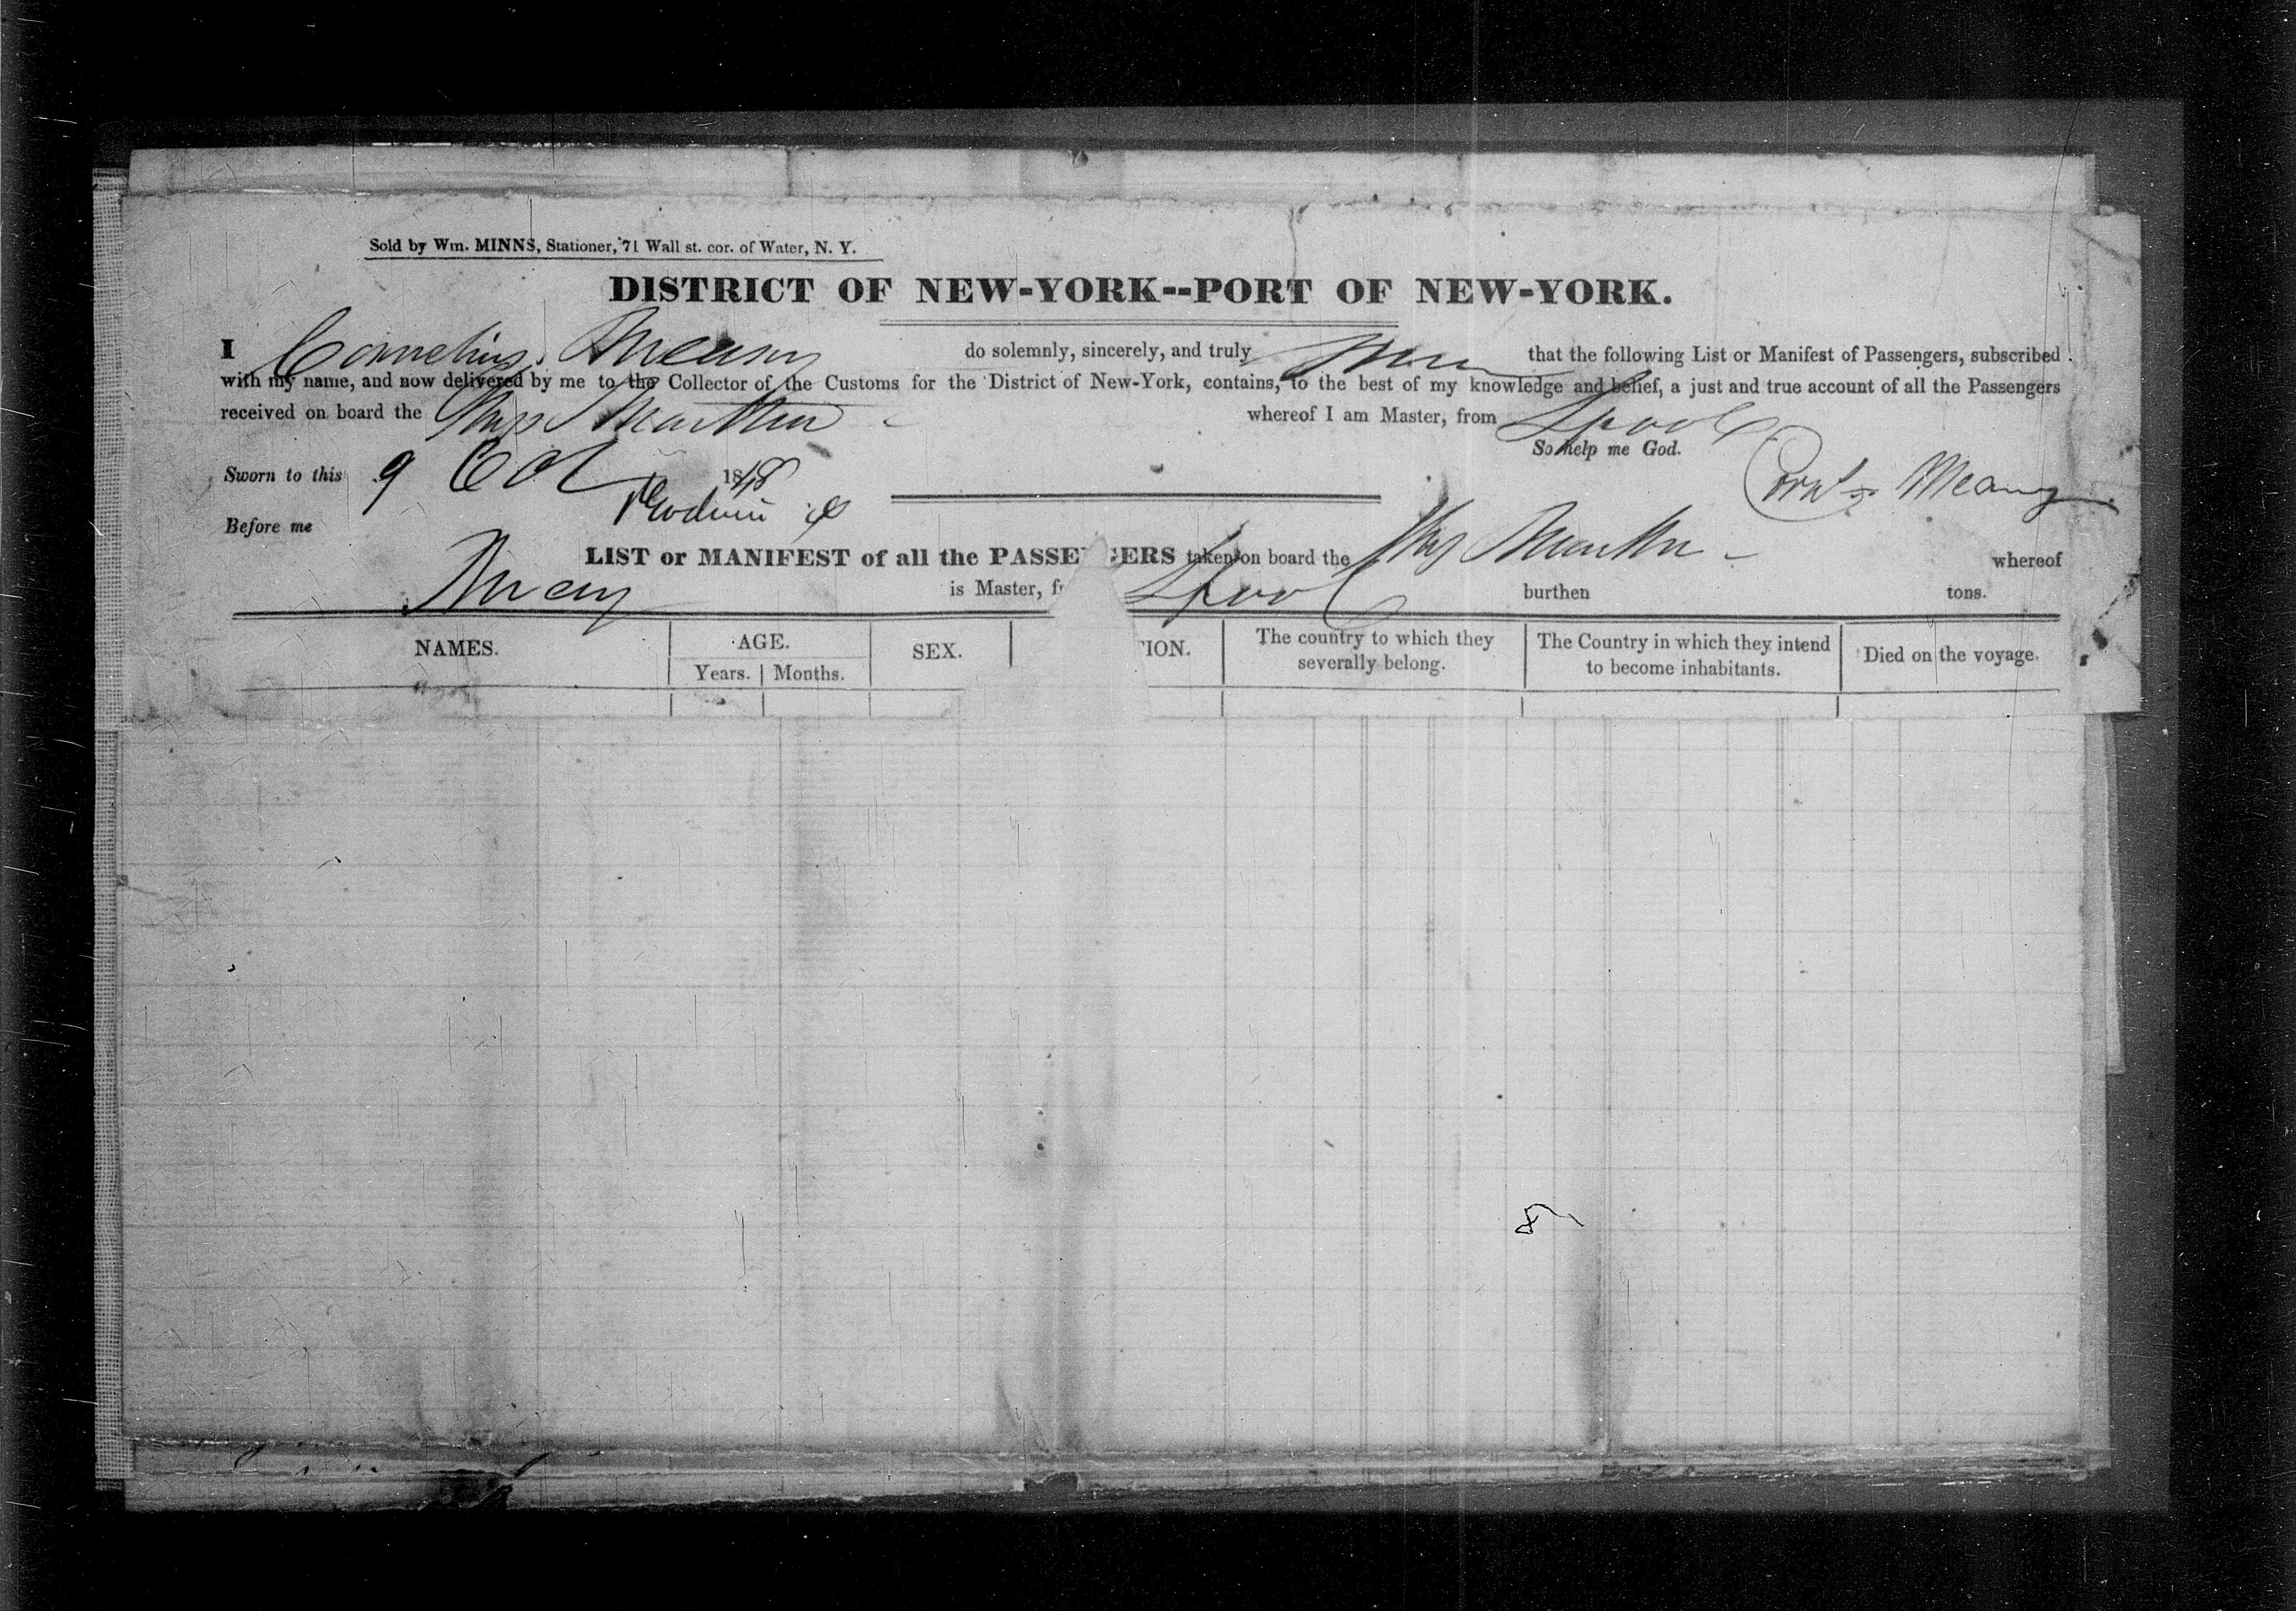 Sold by Wm. MINNS, Stationer, 71 Wall st. cor. of Water, N. Y.
DISTRICT OF NEW-YORK--PORT OF NEW-YORK.
I Cornelius Meany do solemnly, sincerely, and truly that the following List or Manifest of Passengers, subscribed
with my name, and now delivered by me to the Collector of the Customs for the District of New-York, contains, to the best of my knowledge and belief, a just and true account of all the Passengers
received on board the Ship whereof I am Master, from Lpool
So help me God.
Sworn to this 9 Oct 1848
Corns Meany
Before me
LIST or MANIFEST of all the PASSE GERS taken on board the Ship whereof
Meany is Master, fr Lpool burthen tons.
NAMES. AGE. SEX. TION. The country to which they The Country in which they intend Died on the voyage.
Years. Months. severally belong. to become inhabitants.